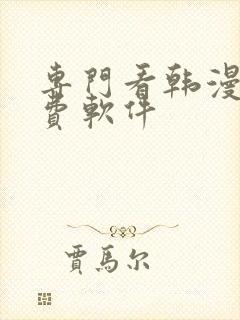 專門看韩漫
費軟件
賈馬尔